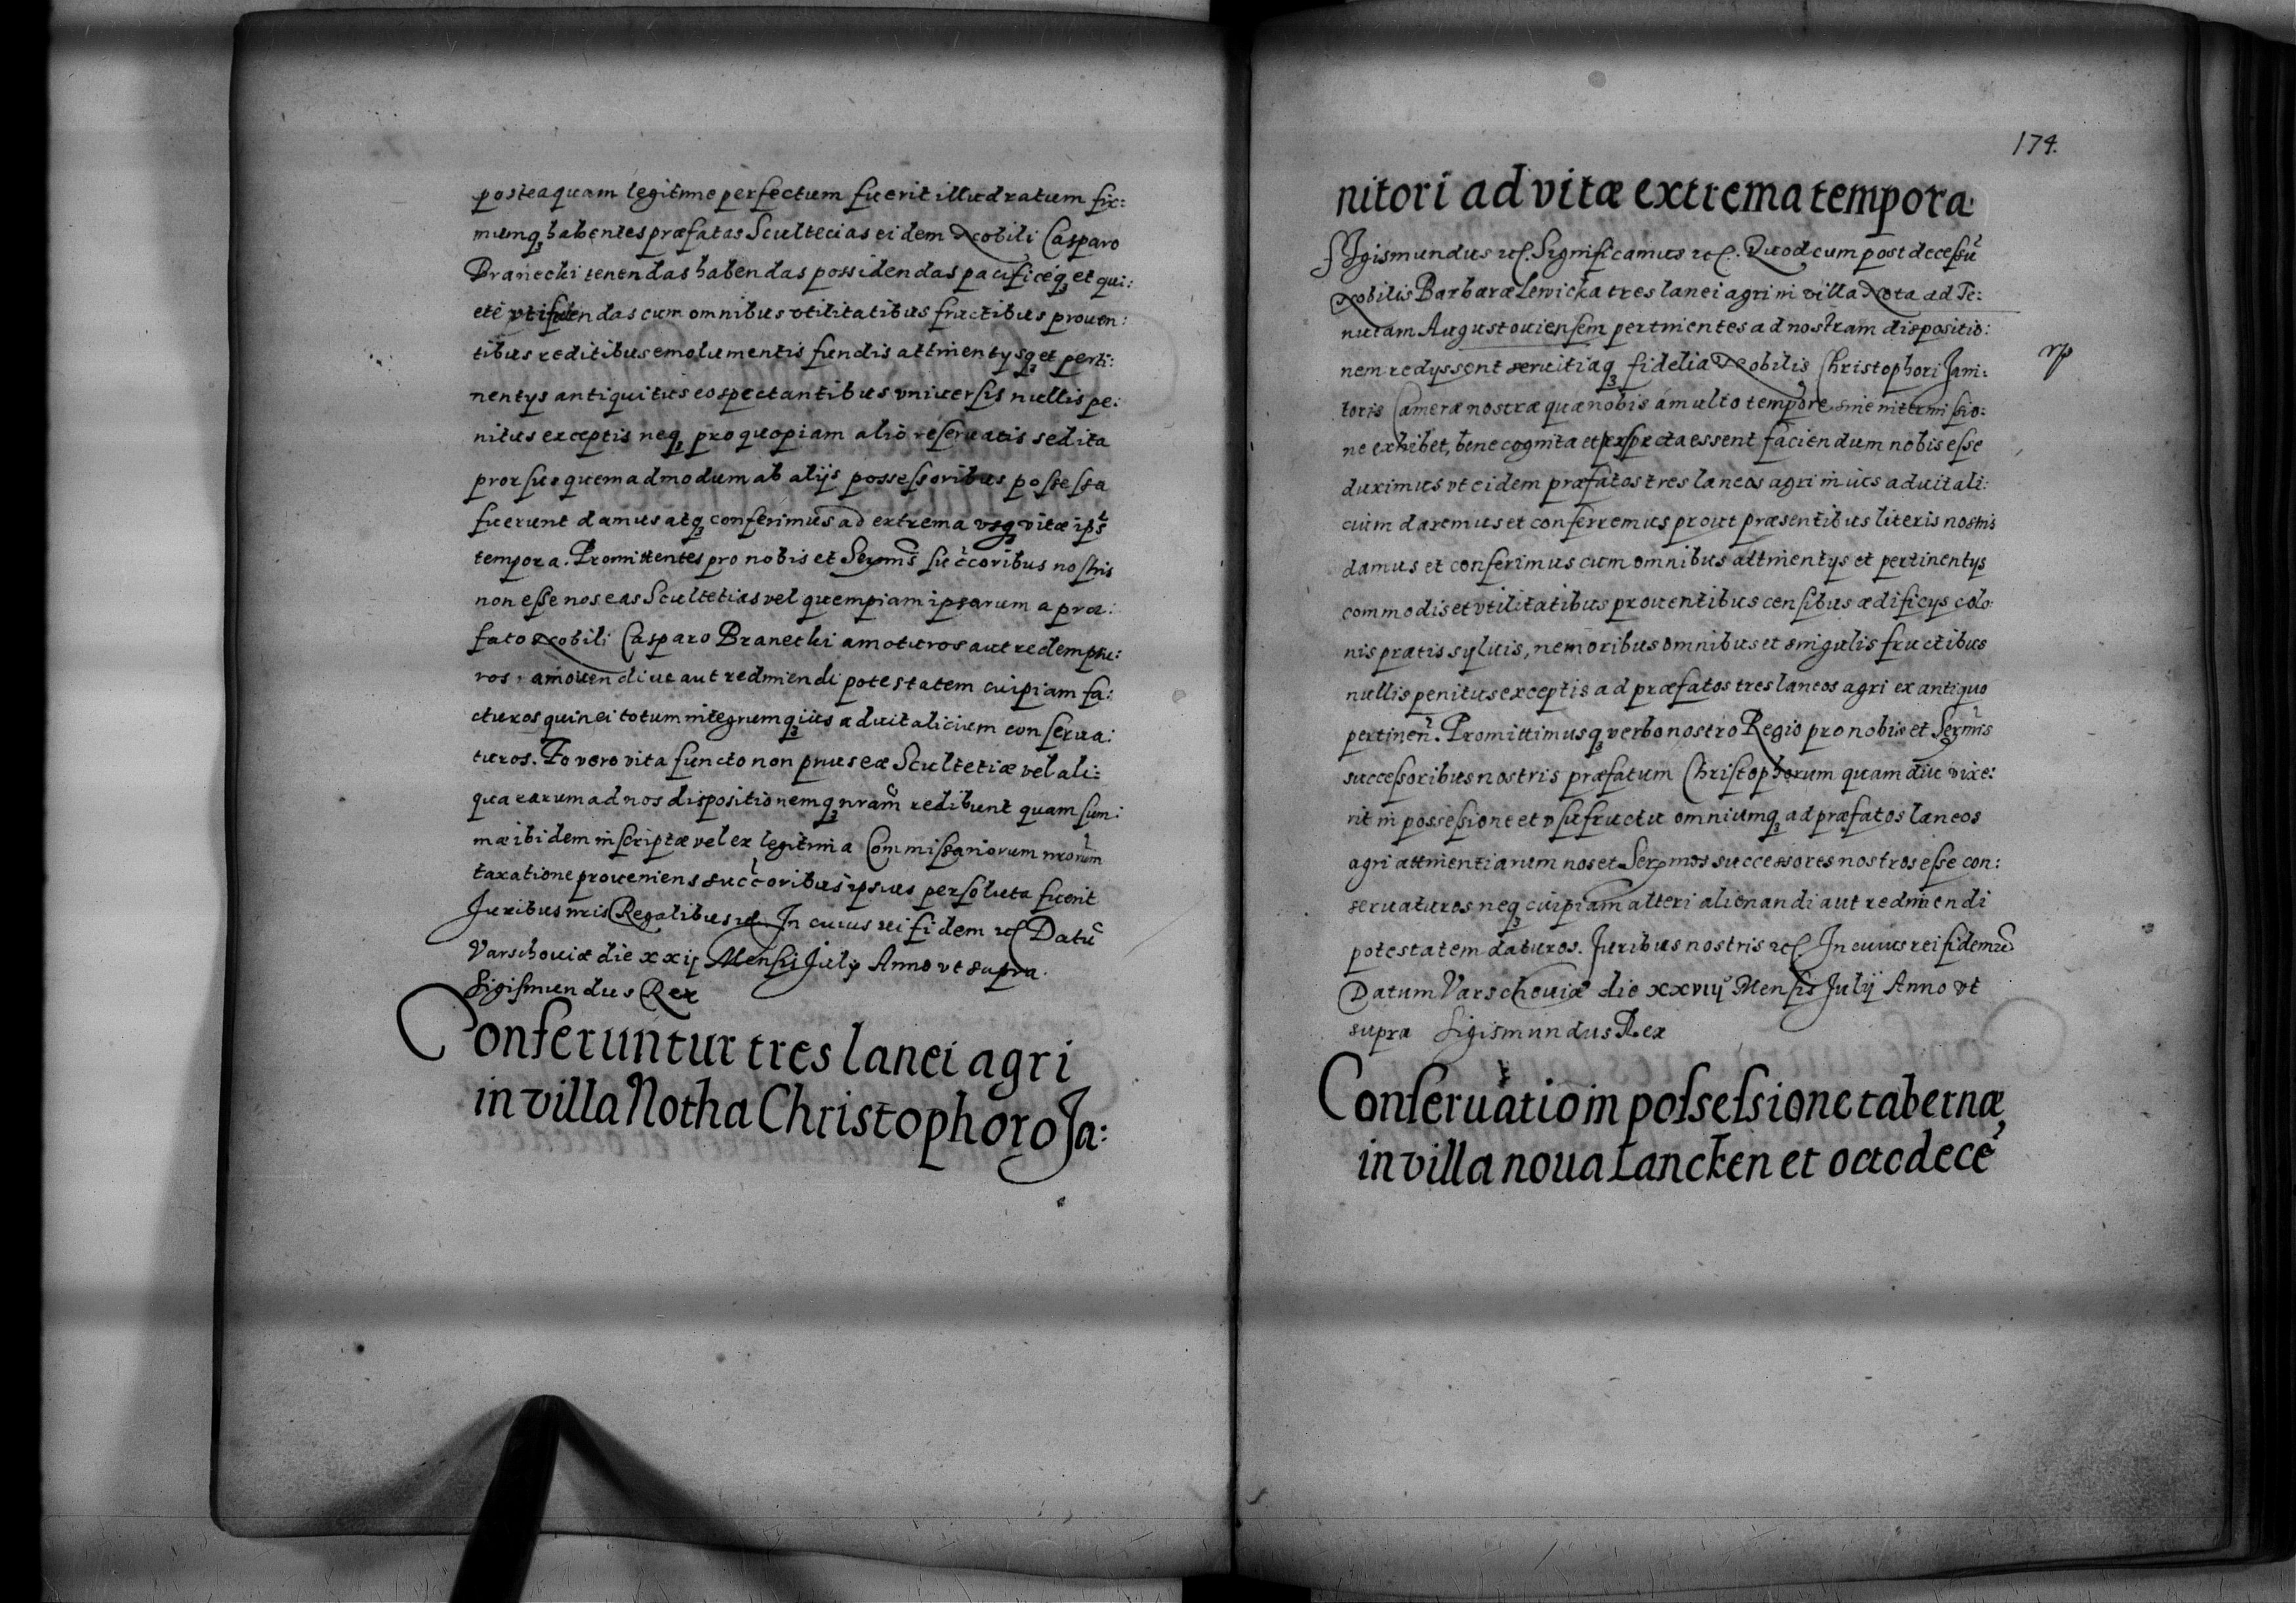 posteaquam legitime perfectum fuerit illud ratum fir:
mumq habentes præfatas Scultecias eidem Nobili Casparo
Branecki tenendas habendas possidendas pacificeq et qui:
ete vtifruendas cum omnibus vtilitatibus fructibus prouen:
tibus reditibus emolumentis fundis attinentysq et perti:
nentys antiquitus eo spectantibus vniuersis nullis pe:
nitus exceptis neq pro quopiam alio reseruatis sed ita
prorsus quemadmodum ab alijs possessoribus possessa
fuerunt damus atq conferimus ad extrema vsq vitæ ips
tempora. Promittentes pro nobis et Sermis succoribus nostris
non esse nos eas Scultetias vel quempiam ipsarum a præ:
fato Nobili Casparo Branecki amoturos aut redemptu:
ros, amouendiue aut redimendi potestatem cuipiam fa:
cturos quin ei totum integrumq ius aduitalicium conserua:
turos. Eo vero vita functo non prius eæ Scultetiæ vel ali:
qua earum ad nos dispositionemq nram redibunt quam sum:
mæ ibidem inscriptæ vel ex legitima Commissariorum nrorum
taxatione proueniens succoribus ipsius persoluta fuerit
Juribus nris Regalibus etc. In cuius rei fidem etc Datu
Varschouiæ die xxij Mensis July Anno vt supra.
Sigismundus Rex
Conferuntur tres lanei agri
in villa Notha Christophoro Ja:
174.
nitori ad vitæ extrema tempora
Sigismundus etc. Significamus etc. Quod cum post decessu
Nobilis Barbaræ Lewicka tres lanei agri in villa Nota ad Te:
nutam Augustouiensem pertinentes ad nostram dispositio:
nem redyssent seruitiaq fidelia Nobilis Christophori Jani:
toris Cameræ nostræ quæ nobis a multo tempore sine intermissio:
ne exhibet, bene cognita et perspecta essent faciendum nobis esse
duximus vt eidem præfatos tres laneos agri in ius aduitali:
cium daremus et conferremus prout præsentibus literis nostris
damus et conferimus cum omnibus attinentys et pertinentys
commodis et vtilitatibus prouentibus censibus ædificys colo:
nis pratis syluis, nemoribus omnibus et singulis fructibus
nullis penitus exceptis ad præfatos tres laneos agri ex antiquo
pertinen. Promittimusq verbo nostro Regio pro nobis et Sermis
successoribus nostris præfatum Christophorum quam diu vixe:
rit in possessione et vsufructu omniumq ad præfatos laneos
agri attinentiarum nos et Sermos successores nostros esse con:
seruaturos neq cuipiam alteri alienandi aut redimendi
potestatem daturos. Juribus nostris etc. In cuius rei fidem etc
Datum Varschouiæ die xxviij Mensis Julij Anno vt
supra Sigismundus Rex
Conseruatio in possessione tabernæ
in villa noua Lancken et octodece